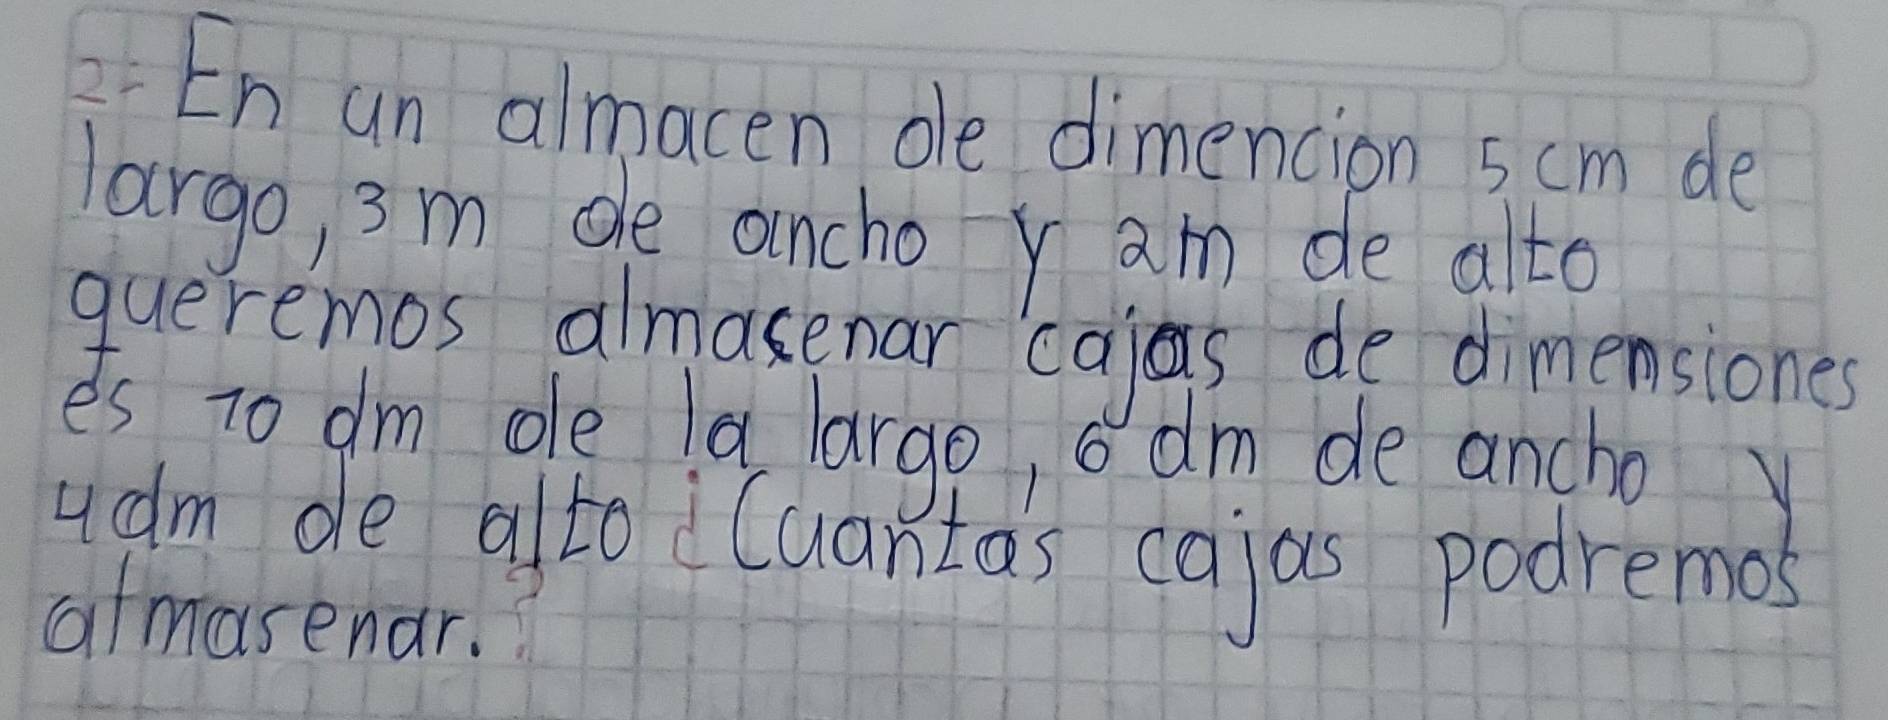 2= En un almacen de dimencion 5 cm de
largo, 3 m de ancho y 2m de alto
queremos almasenar cajas de dimensiones
es 10 dm de la largo, 6 dm de ancho y
4dm de alto ¿Cuantas cajas podremos
almasenar.?